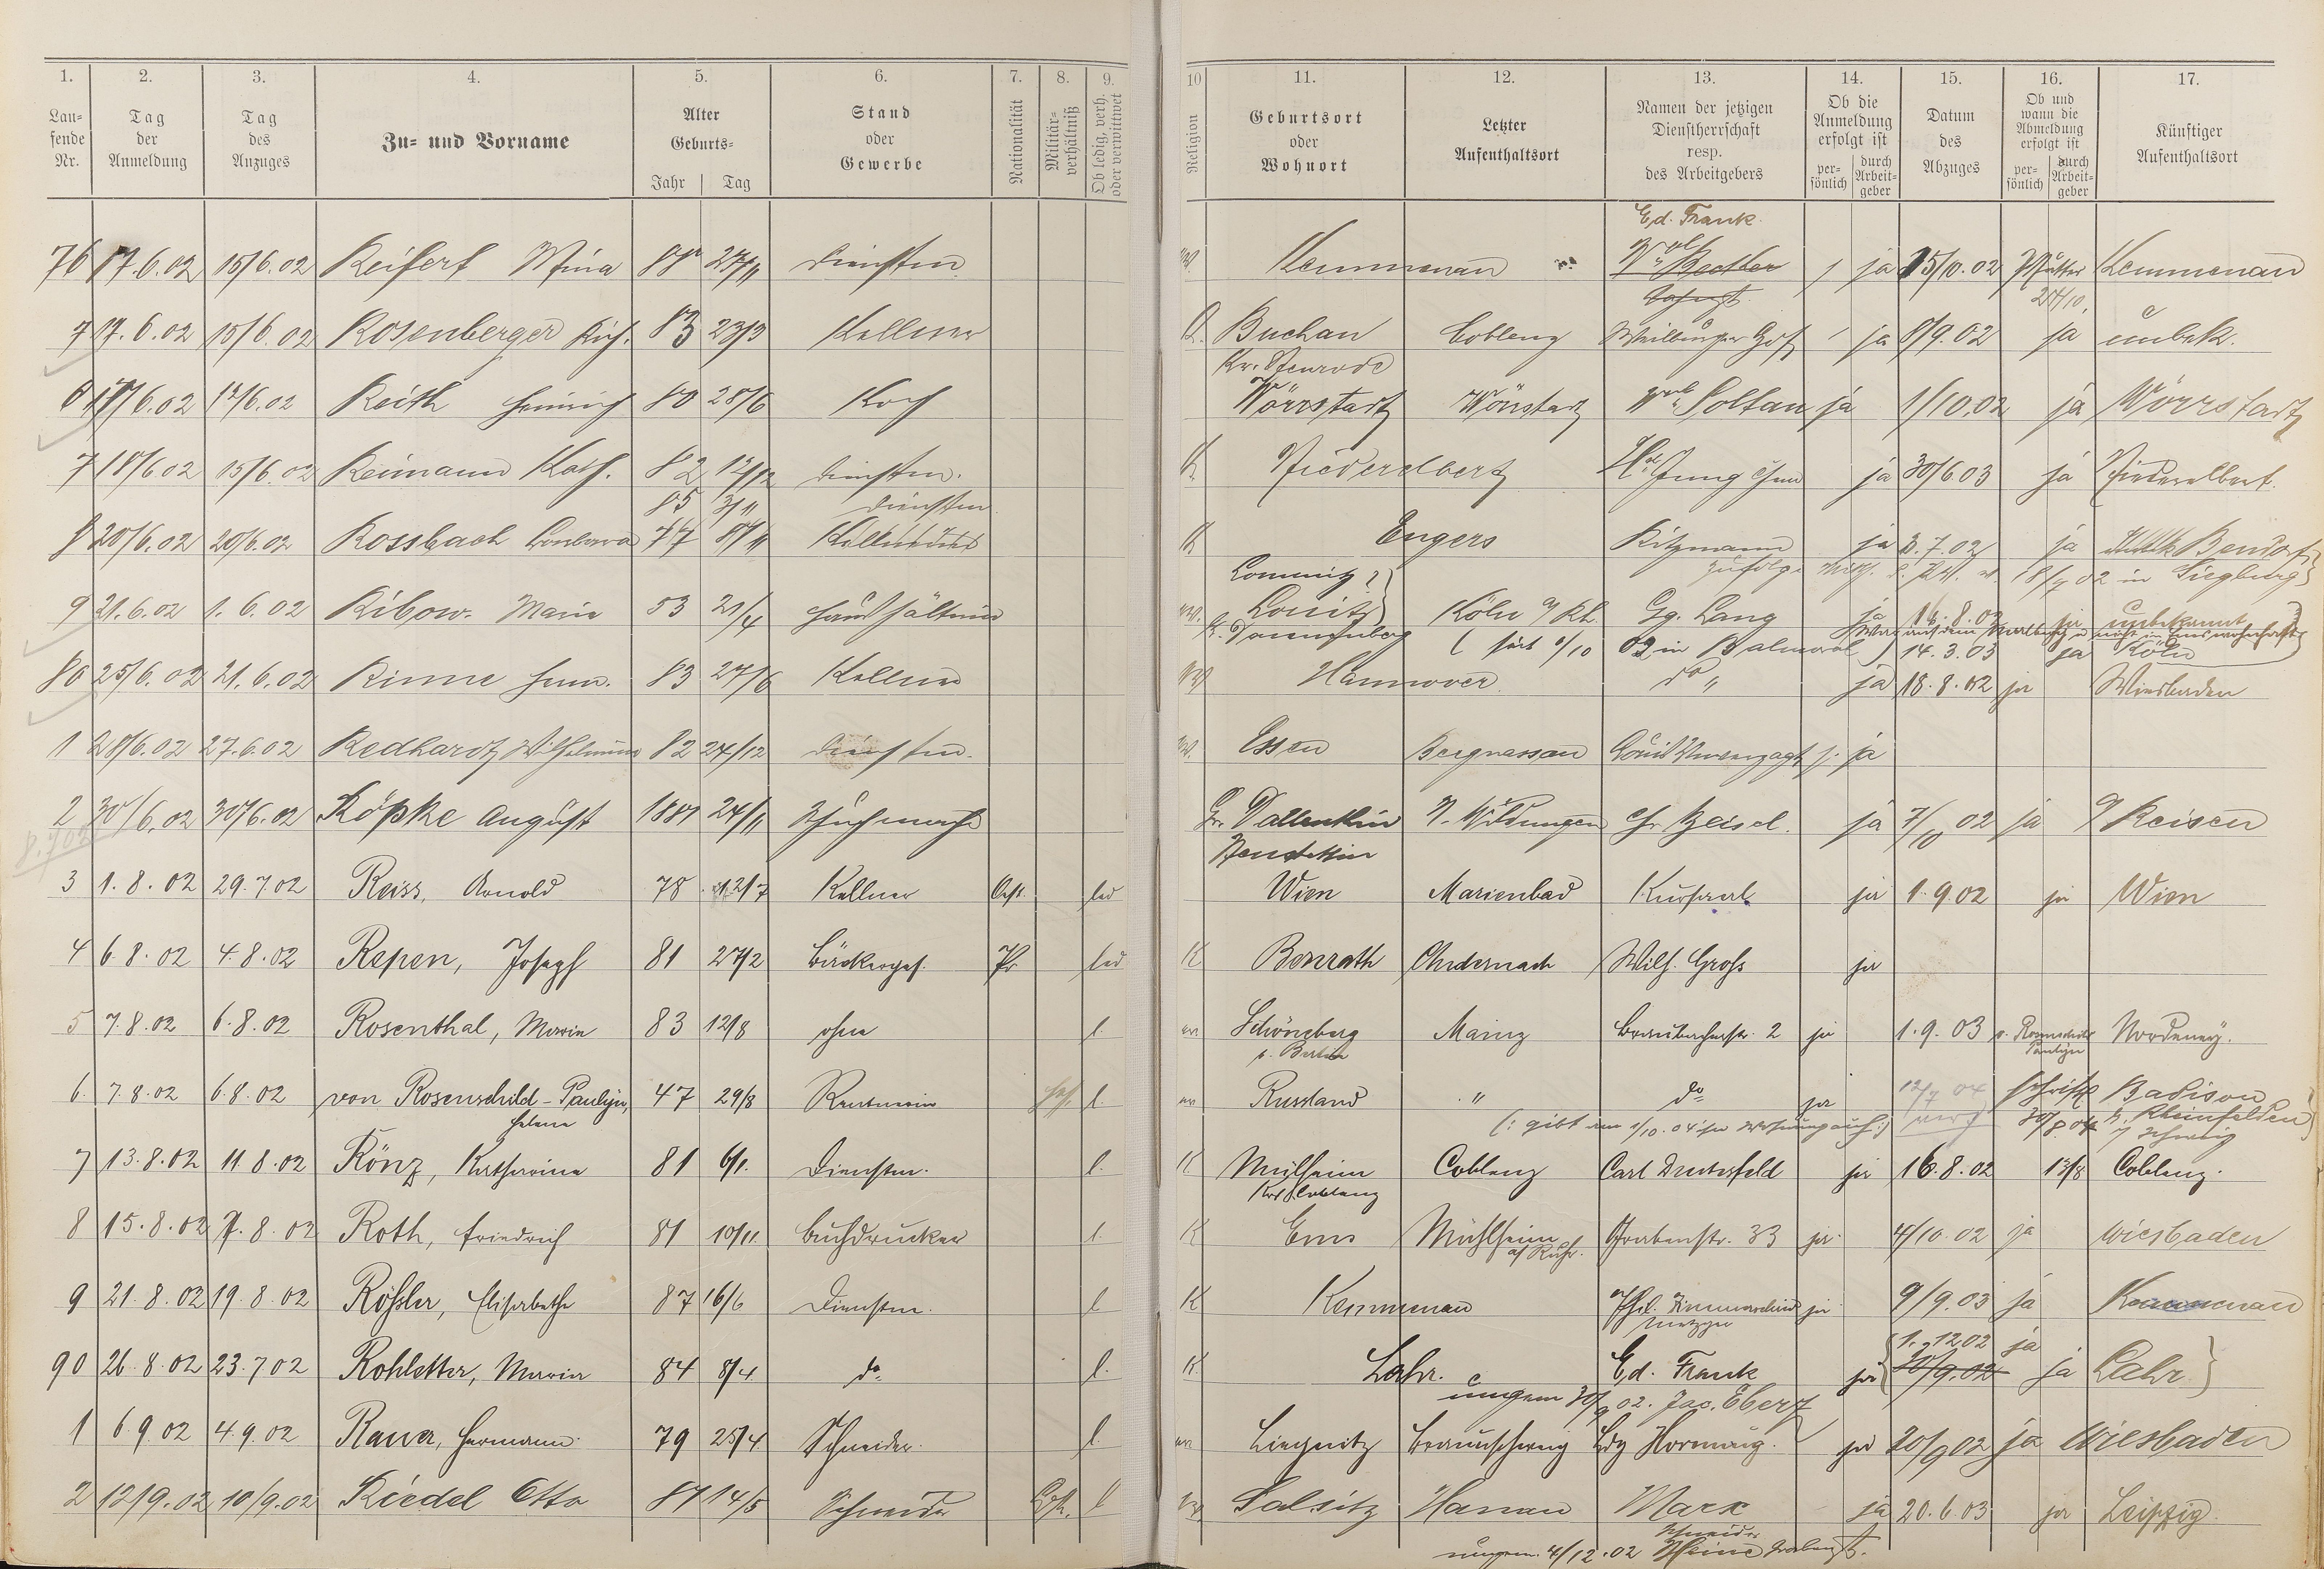 1. 2. 3. 4. 5. 6. 7. 8. 9. 10 11. 12. 13. 14. 15. 16. 17.
Lau-
fende
Nr.
Tag
der
Anmeldung
Tag
des
Anzuges
Zu- und Vorname
Alter
Geburts-
Jahr Tag
Stand
oder
Gewerbe
Nationalität
Militär-
verhältniß
Ob ledig, verh.
oder verwittwet
Religion
Geburtsort
oder
Wohnort
Letzter
Aufenthaltsort
Namen der jetzigen
Dienstherrschaft
resp.
des Arbeitgebers
Ob die
Anmeldung
erfolgt ist
per-
sönlich
durch
Arbeit-
geber
Datum
des
Abzuges
Ob und
wann die
Abmeldung
erfolgt ist
per-
sönlich
durch
Arbeit-
geber
Künftiger
Aufenthaltsort
Ed. Frank
76 17.6.02 15/6.02 Reifert Mina 27/11 Dienstm. Kemmenau ja 15/10.02 Mutter Kemmenau
24/10.
7 17.6.02 15/6.02 Rosenberger Rich. 83 23/3 Kellner Buchau Coblenz Weilburger Hof ja 8/9.02 ja unbek.
17/6.02 12/6.02 Reith Heinrich 80 28/6 Koch Wörrstadt Wörrstadt ja 1/10.02 ja Wörrstadt
7 18/6.02 15/6.02 Reimann Kath. 82 12/12 Dienstm. K. Niederelbert Jung ja 30/6.03 ja Niederelbert.
85 3/11 Dienstm.
8 20/6.02 20/6.02 Rossbach Barbara 77 8/11 K Engers Kitzmann ja 3.7.02 ja Bendorf
zufolge 18/7 02 in Siegburg
Lomnitz?
9 21.6.02 1.6.02 Ribow. Marie 53 21/4 Haushälterin Lonitz Köln a/Rh. Gg. Lang ja 14.8.02 ja unbekannt
(seit 1/10 02 in Balmoral) 14.3.03 ja Köln
80 25/6.02 21.6.02 Rinne Herm. 83 27/6 Kellner Hannover do " ja 18.8.02 ja Wiesbaden
1 28/6.02 27.6.02 Redhardt Wilhelmine 82 24/12 Dienstm. Essen Bergnassau Louis Unverzagt ja
2 30/6.02 30/6.02 Röpke August 1881 24/11 Schuhmacher Gr. Dallenthin N. Wildungen Chr. Zeisel. ja 7/10 02 ja a/Reisen
8.702
Neustettin
3 1.8.02 29.7.02 Reiss, Arnold 78 12/7 Kellner Öst. led Wien Marienbad Kursaal ja 1.9.02 ja Wien
4 6.8.02 4.8.02 Repen, Joseph 81 27/2 Bäckerges. Pr led K Benrath Andernach Wilh. Groß ja
5 7.8.02 6.8.02 Rosenthal, Maria 83 12/8 ohne l Schöneberg Mainz Braubacherstr. 2 ja 1.9.03 Norderney.
b. Berlin
6. 7.8.02 6.8.02 von Rosenschild-Paulyn, 47 29/8 Rentnerin l Russland " do ja 12/7 04 schriftl. Badison
Helene
(: gibt am 1/10.04 ihre Wohnung auf:) verz 30/8.04 b. Rheinfelden
Schweiz
7 13.8.02 11.8.02 Rönz, Katharina 81 6/1. Dienstm. l. K Mülheim Coblenz Carl Duetesfeld ja 16.8.02 13/8 Coblenz.
Krs Coblenz
8 15.8.02 7.8.02 Roth, Friedrich 81 10/11 Buchdrucker l. K Ems Mühlheim Grabenstr. 33 ja 4/10.02 ja Wiesbaden
a/Ruhr.
9 21.8.02 19.8.02 Rößler, Elisabethe 87 16/6 Dienstm. l K Kemmenau ja 9/9.03 ja Kemmenau
Metzger
1.12.02 ja
90 26.8.02 23.7.02 Rohletter, Maria 84 8/4. do l. K Lahr. Ed. Frank ja 20/9.02 ja Lahr
umgem 30/9 02. Jac. Ebert
1 6.9.02 4.9.02 Rauer, Hermann 79 25/4 Schneider. l. Liegnitz Braunschweig Ldg Hornung. ja 20/9 02 ja Wiesbaden
2 12/9.02 10/9.02 Riedel Otto 87 14/5 Schneider l Salsitz Hanau Marx ja 20.6.03 ja Leipzig.
Schneider
umgem. 4/12.02 Heine Grabenst.